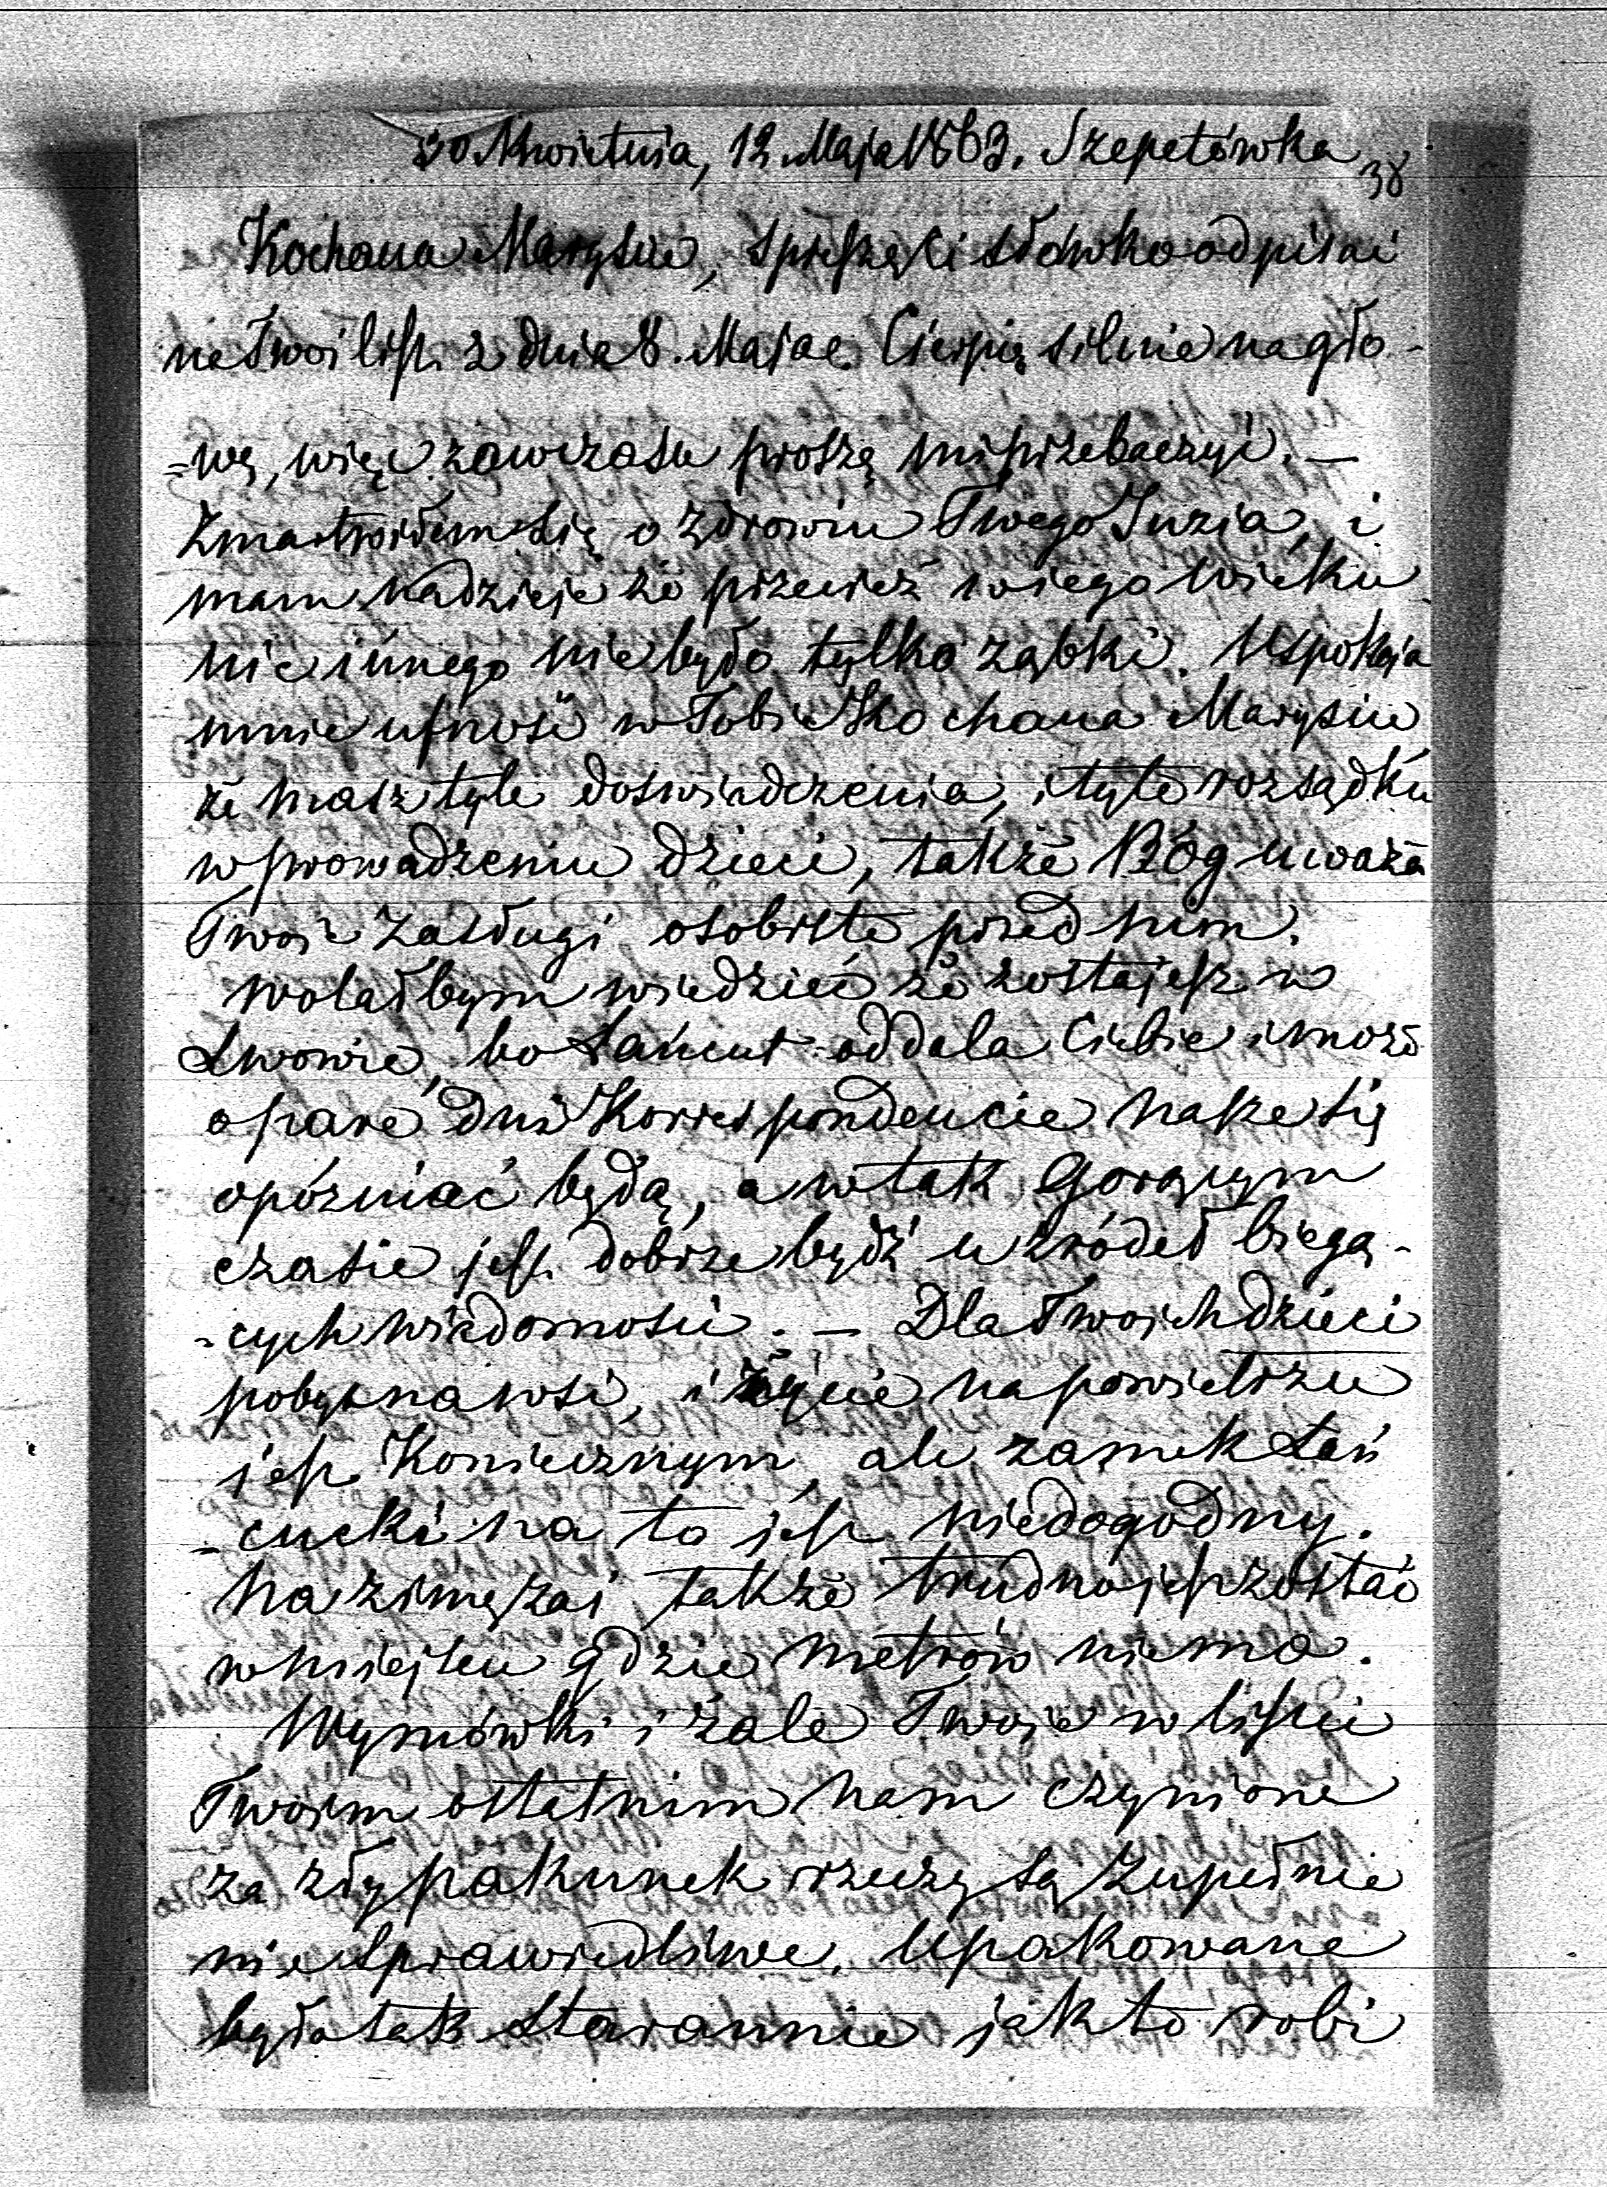 30 Kwietnia, 12. Maja 1863. Szepetówka
38
Kochana Marysiu, spieszę Ci słówko odpisać
na Twoi list z dnia 8. Maja. Cierpię silnie na gło-
=wę, więc zawczasu proszę mi przebaczyć. —
Zmartwiłem się o zdrowiu Twego Juzia, i
mam nadzieje że przecież w iego wieku
nic innego nie było tylko ząbki. Uspokaja
mnie ufność w Tobie Kochana Marysiu
że masz tyle doświadczenia, i tyle rozsądku
w prowadzeniu dzieci, także Bóg uważa
Twoie zasługi osobiste przed nim.
Wolałbym wiedzieć że zostajesz w
Lwowie, bo Łańcut oddala Ciebie i może
o pare dni Korrespondencie nasze się
opózniać będą, a w tak gorącym
czasie jest dobrze bydź u źródeł biegą-
-cych wiadomości. — Dla Twoich dzieci
pobyt na wsi, i życie na powietrzu
jest Koniecznym, ale zamek Łań
-cucki na to jest niedogodny.
Na zimę zaś także trudno jest zostać
w miejscu gdzie metrów niema.
Wymówki i żale Twoie w liście
Twoim ostatnim nam czynione
za zły pakunek rzeczy są zupełnie
niesprawiedliwe. Upakowane
było tak starannie jak to robi